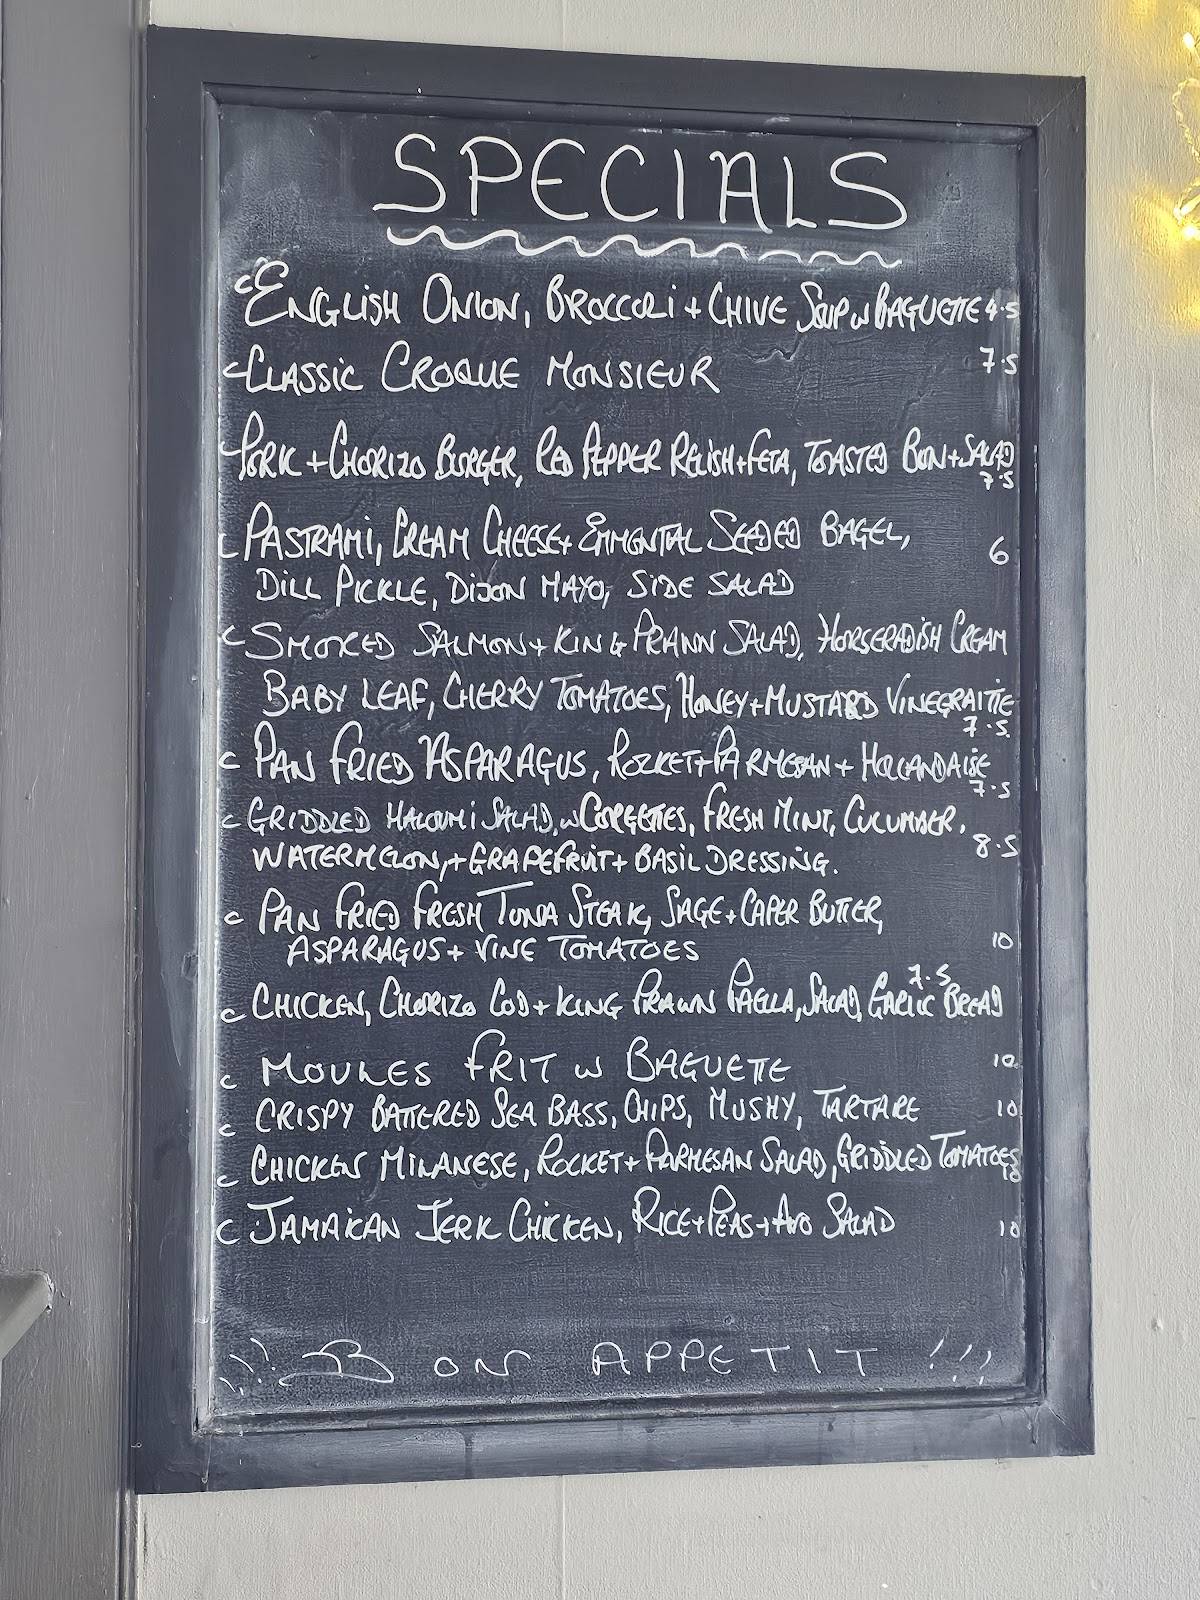 SPECIALS
ENGLISH ONION, BROCCOLI + CHIVE SOUP W BAGUETTE 4.5
CLASSIC CROQUE MONSIEUR 7.5
PORK + CHORIZO BURGER, RED PEPPER RELISH + FETA, TOASTED BUN + SALAD
7.5
PASTRAMI, CREAM CHEESE + EMMENTAL SEEDED BAGEL, 6
DILL PICKLE, DIJON MAYO, SIDE SALAD
SMOKED SALMON + KING PRAWN SALAD, HORSERADISH CREAM
BABY LEAF, CHERRY TOMATOES, HONEY + MUSTARD VINEGRAITTE
7.5
PAN FRIED ASPARAGUS, ROCKET + PARMESAN + HOLLANDAISE
7.5
GRIDDLED HALOUMI SALAD, W CORGETTES, FRESH MINT, CUCUMBER,
WATERMELON, + GRAPEFRUIT + BASIL DRESSING. 8.5
PAN FRIED FRESH TUNA STEAK, SAGE + CAPER BUTTER,
ASPARAGUS + VINE TOMATOES 10
7.5
CHICKEN, CHORIZO COD + KING PRAWN PAELLA, SALAD, GARLIC BREAD
MOULES FRIT W BAGUETTE 10
CRISPY BATTERED SEA BASS, CHIPS, MUSHY, TARTARE 10
CHICKEN MILANESE, ROCKET + PARMESAN SALAD, GRIDDLED TOMATOES
10
JAMAICAN JERK CHICKEN, RICE + PEAS + AVO SALAD 10
BON APPETIT !!!